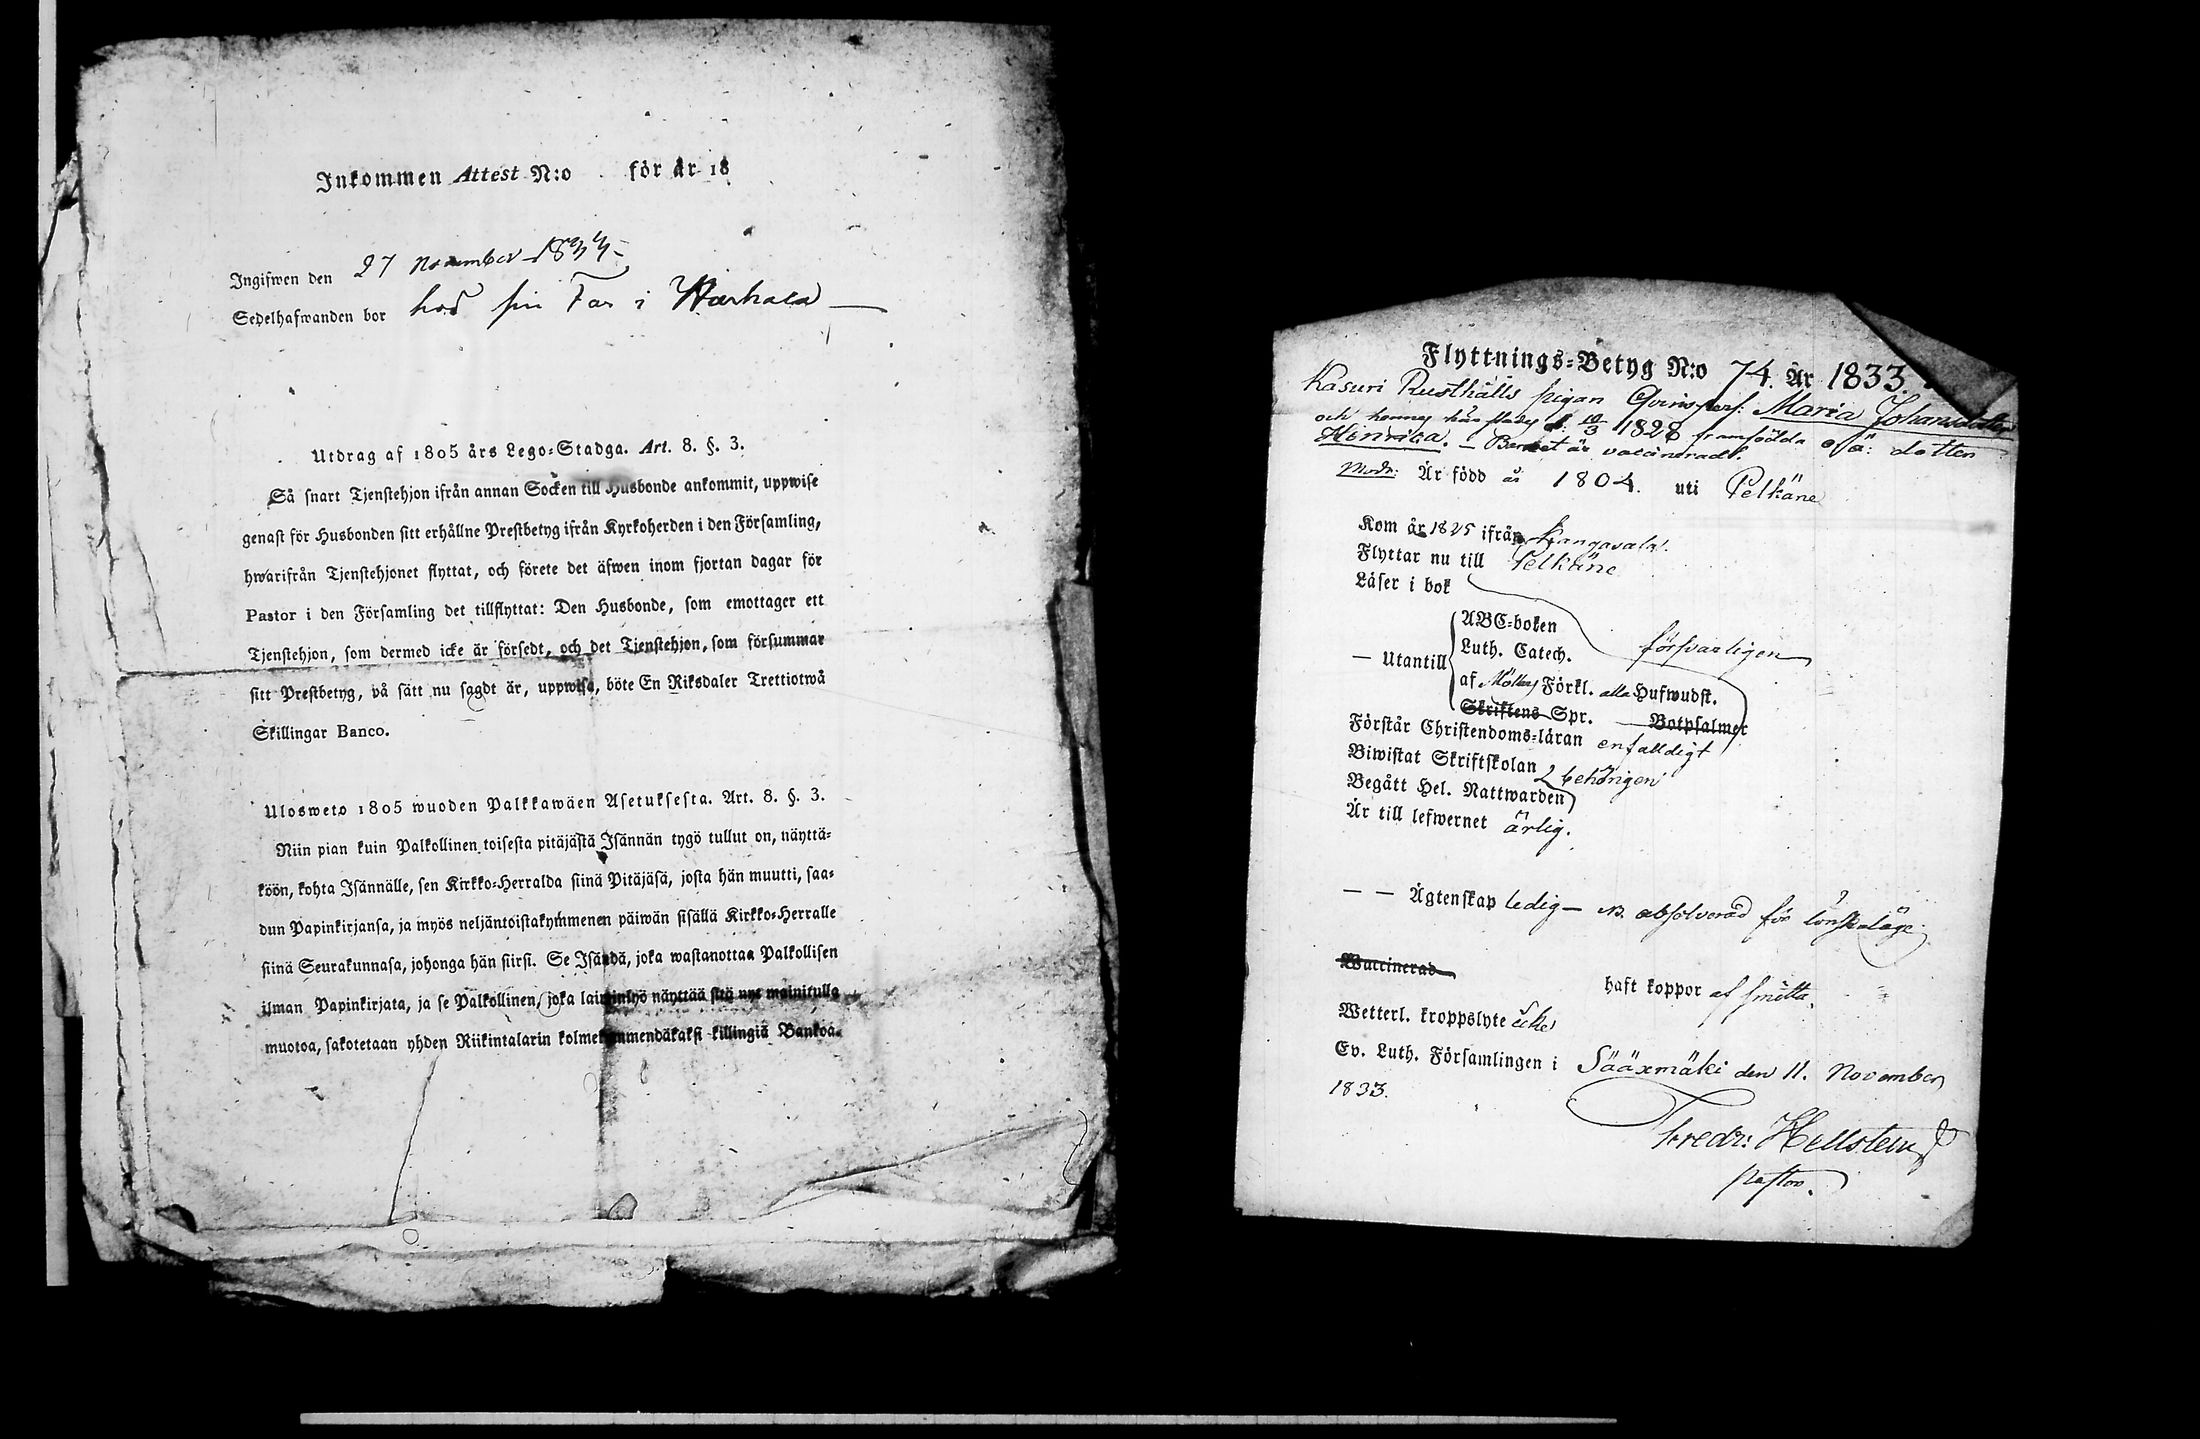 Inkommen Attest N:o för år 18
Ingifwen den 27 November 1833
Sedelhafwanden bor hos sin Far i Harhala
Utdrag af 1805 års Lego-Stadga. Art. 8. §. 3.
Så snart Tjenstehjon ifrån annan Socken till Husbonde ankommit, uppwise
genast för Husbonden sitt erhållne Prestbetyg ifrån Kyrkoherden i den Församling,
hwarifrån Tjenstehjonet flyttat, och förete det äfwen inom fjortan dagar för
Pastor i den Församling det tillflyttat: Den Husbonde, som emottager ett
Tjenstehjon, som dermed icke är försedt, och det Tjenstehjon, som försummar
sitt Prestbetyg, på sätt nu sagdt är, uppwisa, böte En Riksdaler Trettiotwå
Skillingar Banco.
Ulosweto 1805 wuoden Palkkawäen Asetuksesta. Art. 8. §. 3.
Niin pian kuin Palkollinen toisesta pitäjästä Isännän tygö tullut on, näyttä-
köön, kohta Isännälle, sen Kirkko-Herralda siinä Pitäjäsä, josta hän muutti, saa-
dun Papinkirjansa, ja myös neljäntoistakymmenen päiwän sisällä Kirkko-Herralle
siinä Seurakunnasa, johonga hän siirsi. Se Isändä, joka wastanottaa Palkollisen
ilman Papinkirjata, ja se Palkollinen, joka laiminlyö näyttää sitä nyt mainitulla
muotoa, sakotetaan yhden Riikintalarin kolmekymmendäkaksi killingiä Bankoa.
Flyttnings-Betyg N:o 74. År 1833.
Kasuri Rusthålls pigan Qvinspers: Maria Johansdotter
och hennes d. 10/3 1828 framfödda oä: dotter
Henrica. — Barnet är vaccineradt.
Modr: Är född år 1804. uti Pelkäne
Kom år 1825 ifrån Kangasala.
Flyttar nu till Pelkäne
Läser i bok
ABC-boken
Luth. Catech. försvarligen
— Utantill
af Möllers Förkl. alla Hufwudst.
Skriftens Spr. Botpsalmer
Förstår Christendoms-läran enfalldigt
Biwistat Skriftskolan
behörigen
Begått Hel. Nattwarden
Är till lefwernet ärlig.
— — Ägtenskap ledig — NB. absolverad för lönskaläge
Waccinerad
haft koppor af smitta.
Wetterl. kroppslyte icke
Ev. Luth. Församlingen i Sääxmäki den 11. November
1833.
Fredr: Hellsten
Pastor.